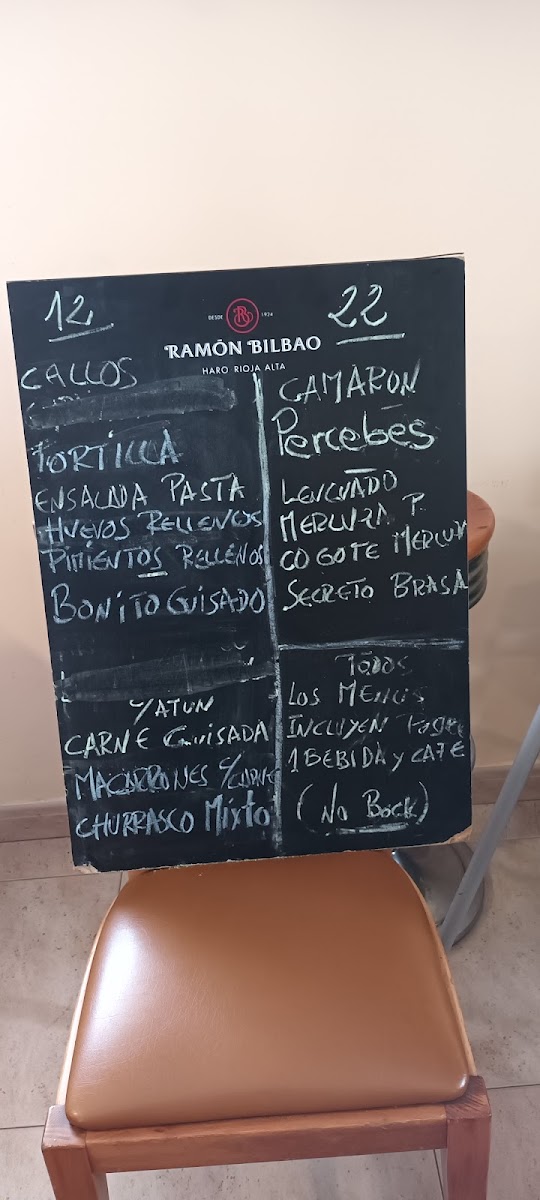 12
CALLOS
TORTILLA
ENSALADA PASTA
HUEVOS RELLENOS
PIMIENTOS RELLENOS
BONITO GUISADO
Y ATUN
CARNE GUISADA
MACARRONES C/CARNE
CHURRASCO MIXTO
DESDE R 1924
RAMÓN BILBAO
HARO RIOJA ALTA
22
CAMARON
Percebes
LENGUADO
MERLUZA P.
COGOTE MERLUZA
SECRETO BRASA
TODOS
LOS MENUS
INCLUYEN Postre
1 BEBIDA Y CAFE
(NO BOCK)